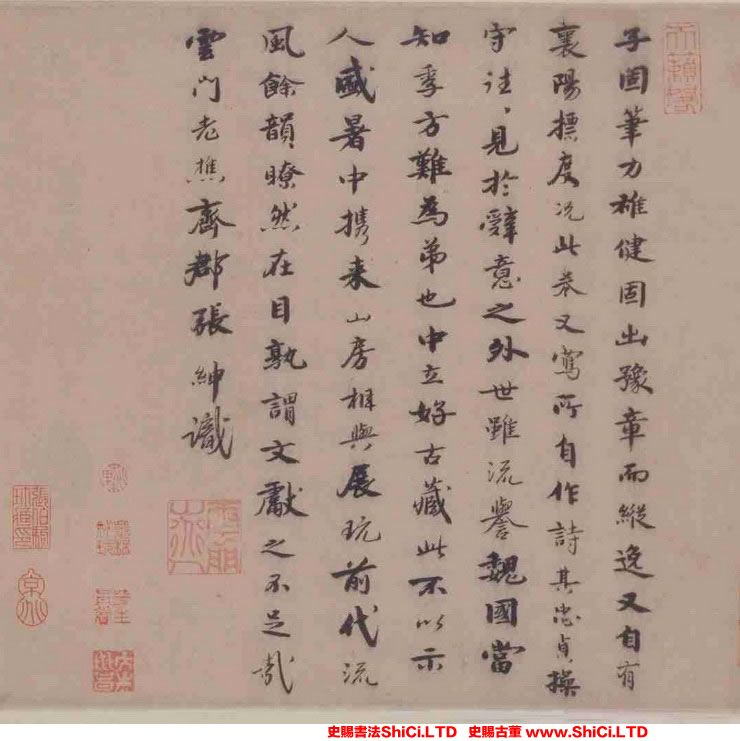 子固筆力雄健固出豫章而縱逸又自有
襄陽標度況此卷又寫所自作詩其忠貞操
守往〻見於辭意之外世雖流譽魏國當
知季方難為弟也中立好古藏此不以示
人盛暑中携来山房相與展玩前代流
風餘韻瞭然在目孰謂文獻之不足哉
雲門老樵齊郡張紳識
史賜書法ShiCi.LTD 史賜古董 www.ShiCi.LTD